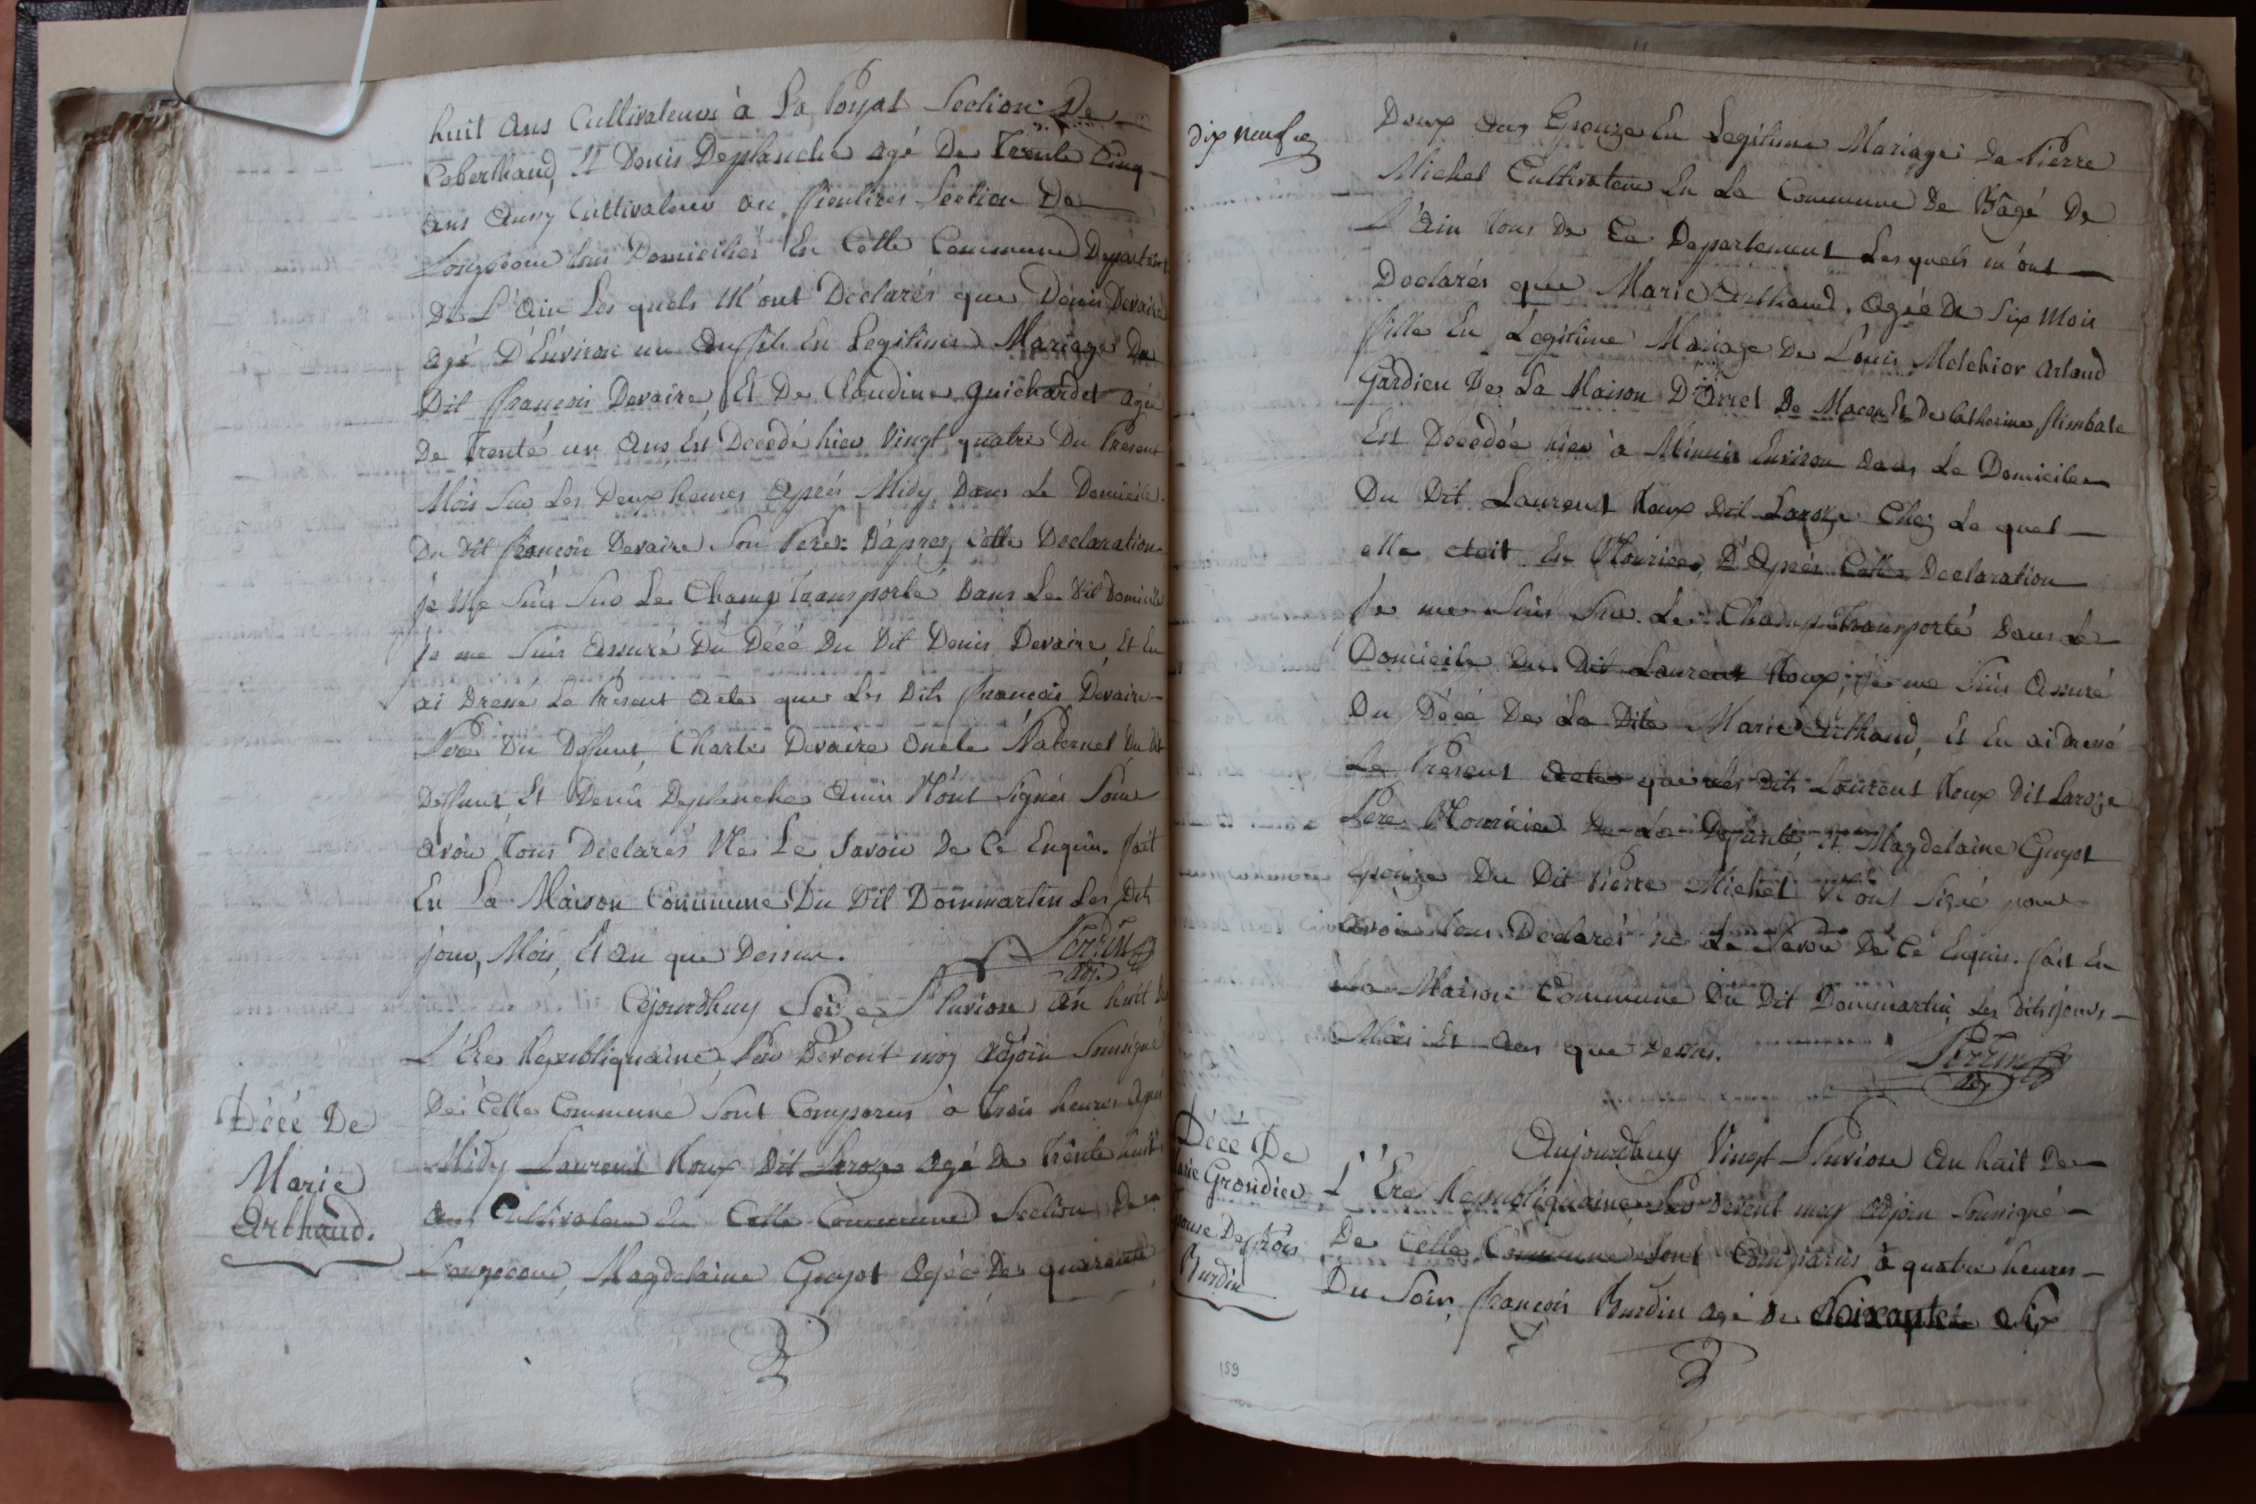 huit ans Cultivateur à La Poyat Section De
Caberthaud, Et Denis Deplanche agé De Trente Cinq
ans Aussy Cultivateur au Section De
Longecour tous Domiciliés En Cette Commune Département
De L'Ain Les quels M'ont Declarés que Denis Devaire
agé D'Environ un an fils En Legitime Mariage Du
Dit françois Devaire, Et De Claudine guichardet agée
De Trente un ans Est Decedé hier Vingt quatre Du Présent
Mois Sur Les Deux heures Après Midy Dans Le Domicile
Du Dit françois Devaire Son Pere. D'apres Cette Declaration
je Me Suis Sur Le Champ Transporté Dans Le Dit Domicile
je me Suis assuré Du Décé Du Dit Denis Devaire, Et En
ai Dressé Le Présent Acte que Les Dits françois Devaire
Pere Du Defunt, Charle Devaire Oncle Paternel Du Dit
Deffunt, Et Denis Deplanche Amis N'ont Signés Pour
avoir Tous Déclarés Ne Le Savoir De Ce Enquis. fait
En La Maison Commune Du Dit Dommartin Les Dits
jour, Mois, Et an que Dessus.
Perrin
adj.
Décé De
Marie
Arthaud.
Ajourdhuy Seize Pluviose an huit De
L'Ere Republiquaine, Par Devent moy adjoin Soussigné
De Cette Commune Sont Comparus à trois heures Après
Midy Laurent Roux Dit Laroze agé De Trente huit
ans Cultivateur En Cette Commune Section De
Longecour, Magdelaine Guyot agée De quarante
Dix neuf
Deux ans Epouze En Legitime Mariage De Pierre
Michel Cultivateur En La Commune De Bâgé De
L'Ain tous De Ce Departement Les quels m'ont
Declarés que Marie Arthaud, agée De Six Mois
fille En Legitime Mariage De Louis Melchior Artaud
Gardien De La Maison D'Arret De Macon Et De Catherine flimbale
Est Décédée hier à Minuit Environ Dans Le Domicile
Du Dit Laurent Roux Dit Laroze Chez Le quel
elle etoit En Nourice, D'Après Cette Declaration
Je me Suis Sur Le Champ Transporté Dans Le
Domicile Du Dit Laurent Roux, je me Suis Assuré
Du Décé De La Dite Marie Arthaud, Et En ai Dressé
Le Présent Acte que les Dits Laurent Roux Dit Laroze
Pere Nouricier De La Defunte, Et Magdelaine Guyot
Epouze Du Dit Pierre Michel N'ont Signé pour
avoir tous Déclarés ne Le Savoir De Ce Enquis. fait En
La Maison Commune Du Dit Dommartin Les Dits jours
Mois Et ans que Dessus.
Perrin
adj
Décé De
Grondier
Epouse De frçois
Burdin
Aujourdhuy Vingt Pluviose an huit De
L'Ere Republiquaine Par Devent moy adjoin Soussigné
De Cette Commune Sont Comparus à quatre heures
Du Soir, françois Burdin agé De Soixante Six
159